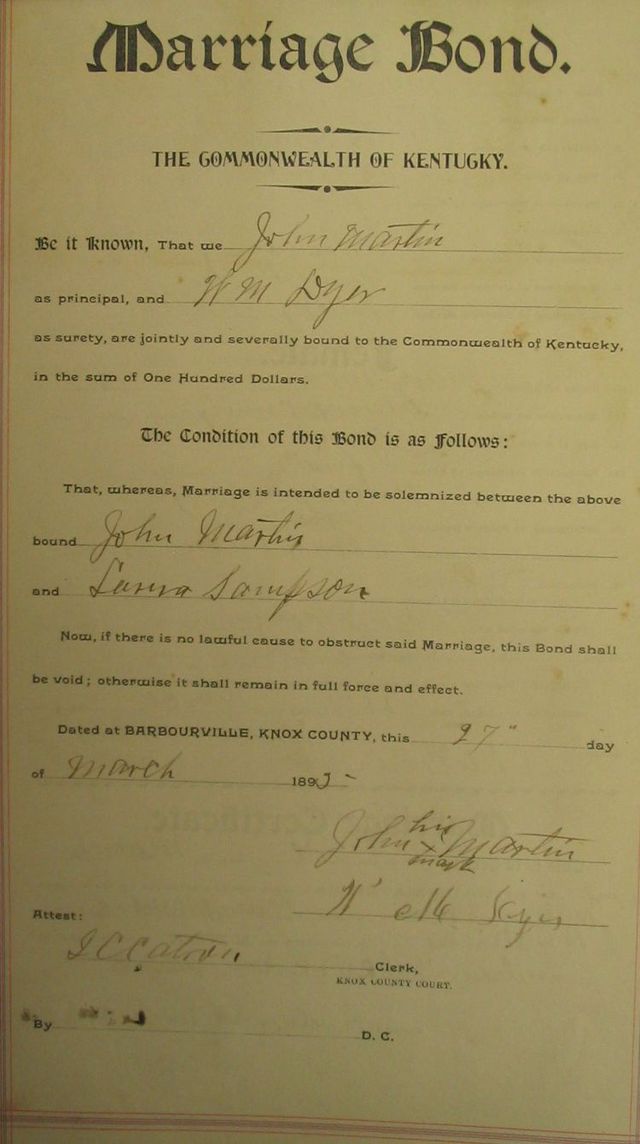 Marriage Bond.
THE COMMONWEALTH OF KENTUCKY.
Be it Known, That we John Martin
as principal, and W M Dyer
as surety, are jointly and severally bound to the Commonwealth of Kentucky,
in the sum of One Hundred Dollars.
The Condition of this Bond is as Follows:
That, whereas, Marriage is intended to be solemnized between the above
bound John Martin
and Sampson
Now, if there is no lawful cause to obstruct said Marriage, this Bond shall
be void; otherwise it shall remain in full force and effect.
Dated at BARBOURVILLE, KNOX COUNTY, this 27" day
of March 1895
his
John x Martin
mark
W M Dyer
Attest:
Clerk,
KNOX COUNTY COURT.
By D. C.